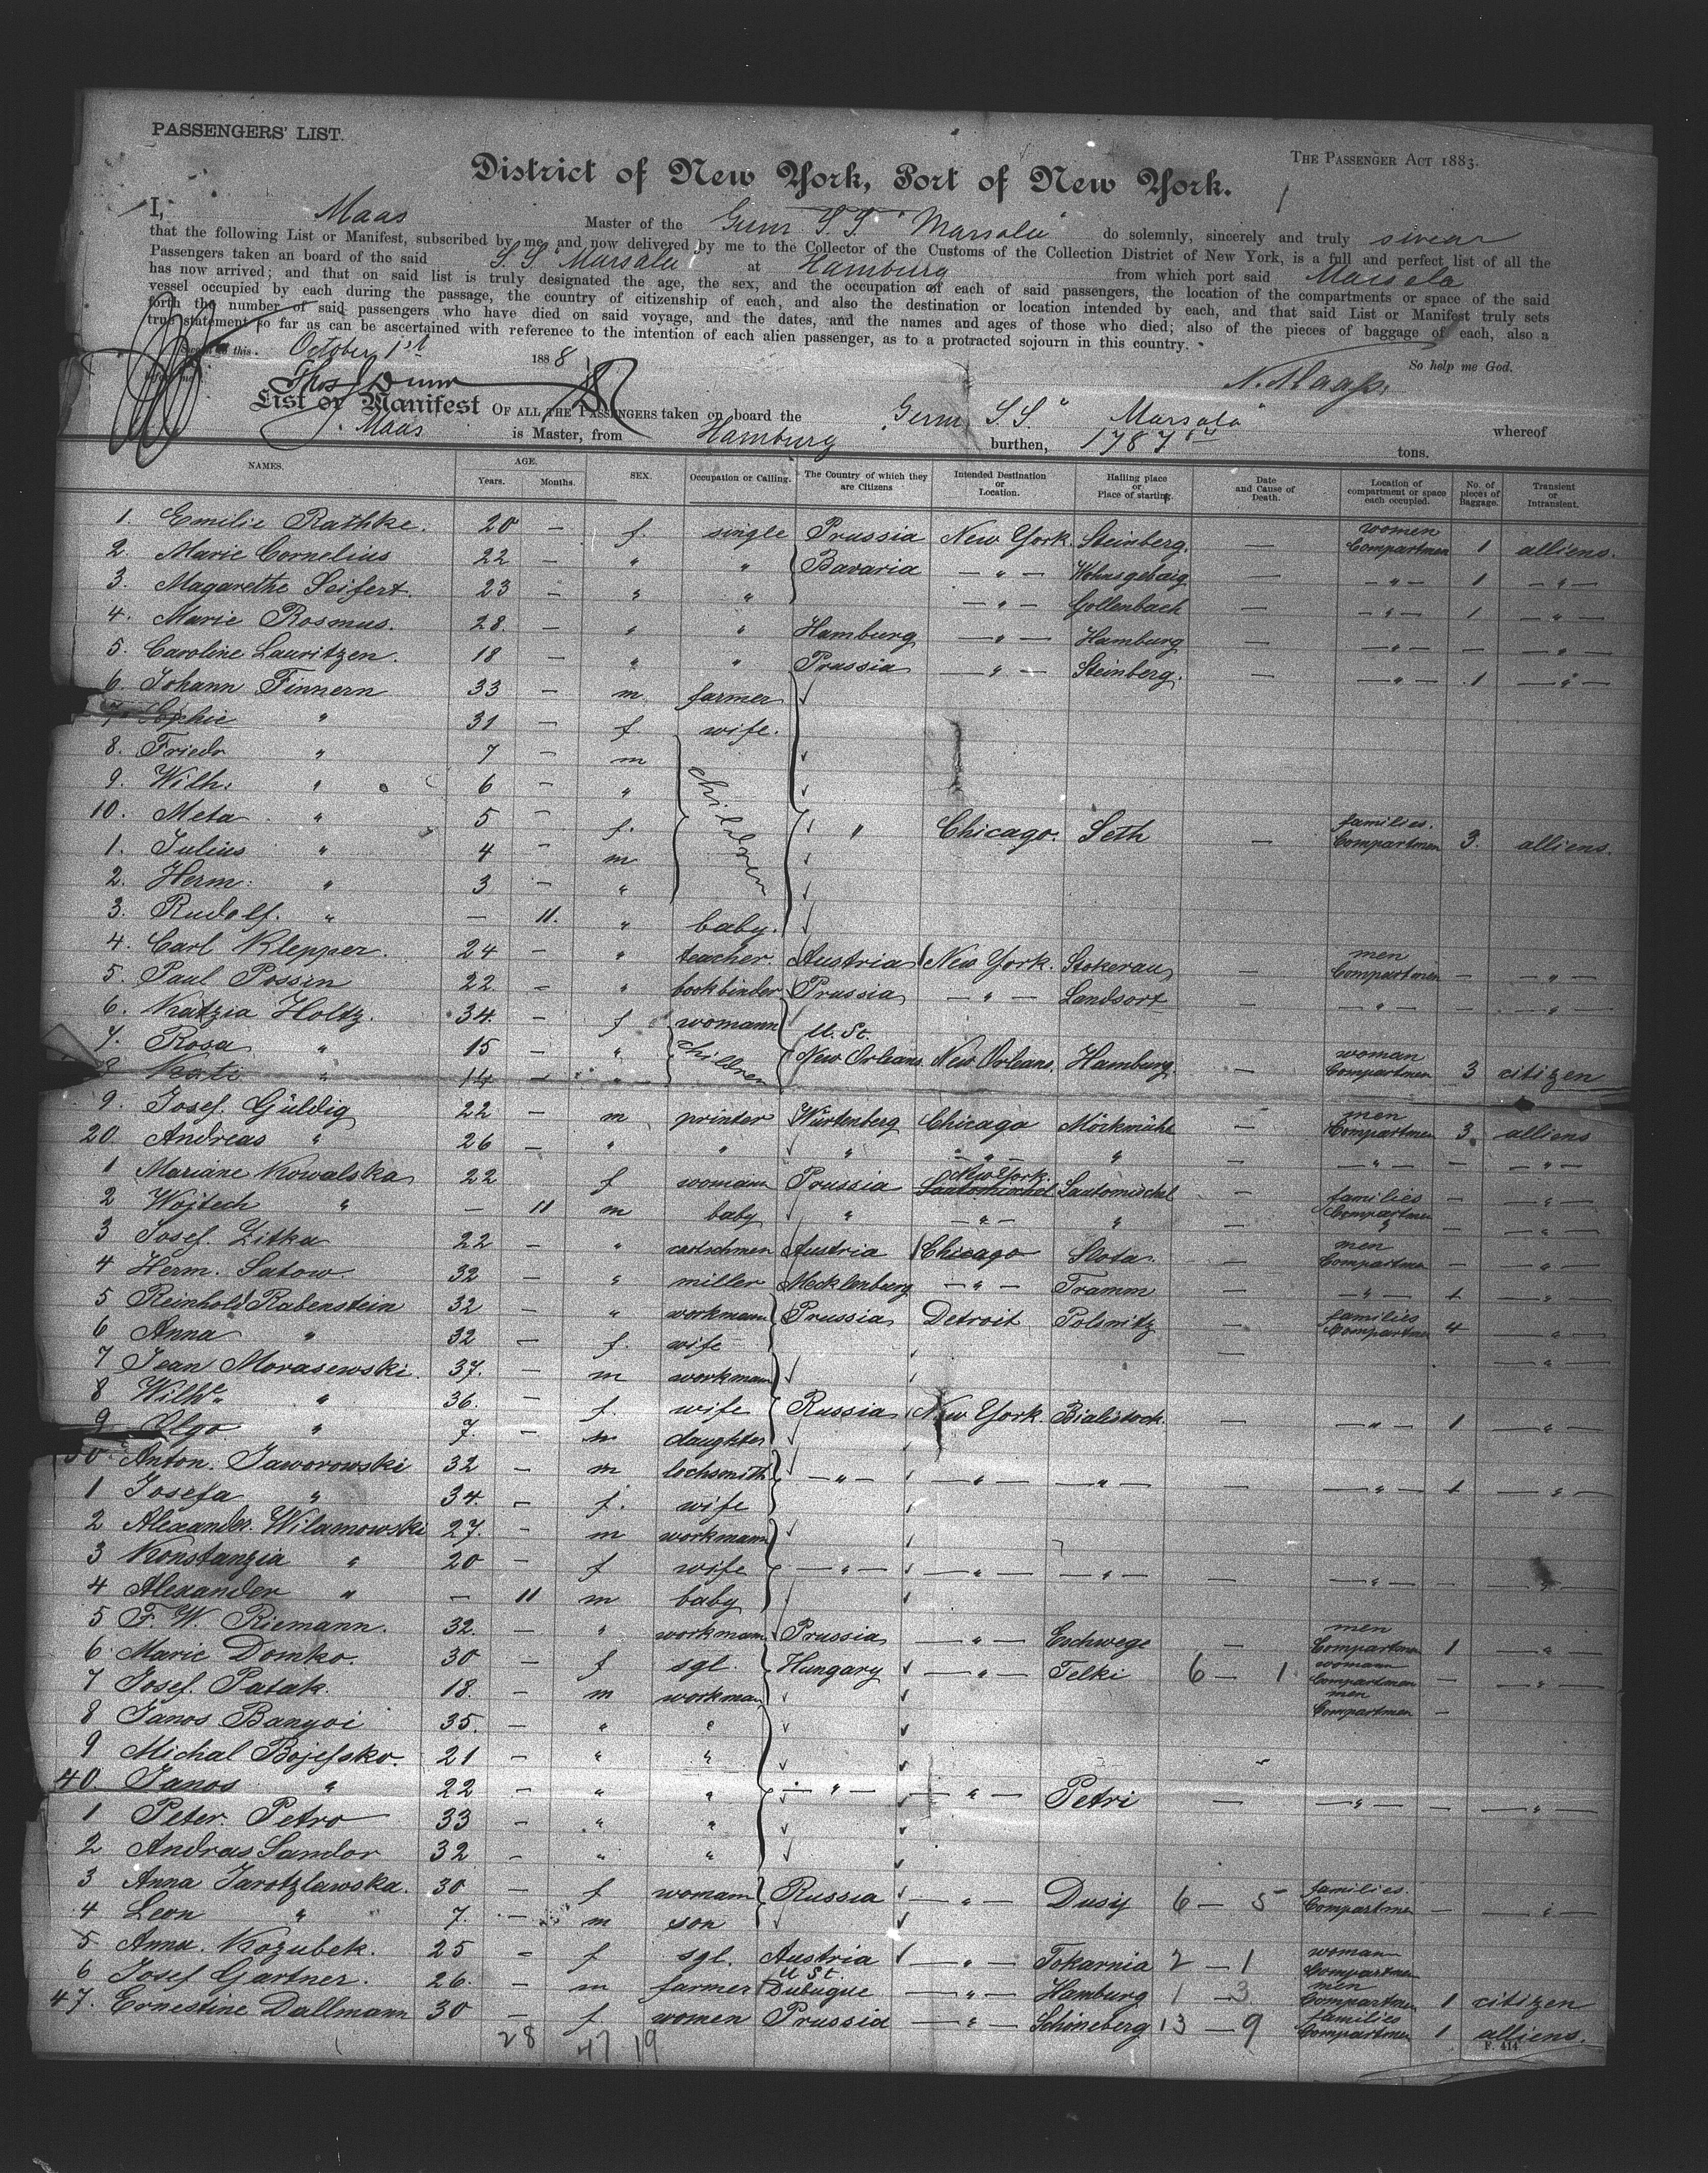 PASSENGERS' LIST.
THE PASSENGER ACT 1883.
District of New York, Port of New York.
I, Maas Master of the Germ S. S. "Marsala" do solemnly, sincerely and truly swear
that the following List or Manifest, subscribed by me, and now delivered by me to the Collector of the Customs of the Collection District of New York, is a full and perfect list of all the
Passengers taken an board of the said S. S. "Marsala" at Hamburg from which port said Marsala
has now arrived; and that on said list is truly designated the age, the sex, and the occupation of each of said passengers, the location of the compartments or space of the said
vessel occupied by each during the passage, the country of citizenship of each, and also the destination or location intended by each, and that said List or Manifest truly sets
forth the number of said passengers who have died on said voyage, and the dates, and the names and ages of those who died; also of the pieces of baggage of each, also a
true statement so far as can be ascertained with reference to the intention of each alien passenger, as to a protracted sojourn in this country.
this October 1st 1888 So help me God.
Thos J Dunn N. Maass
List or Manifest OF ALL THE PASSENGERS taken on board the Germ. S. S. "Marsala" whereof
Maas is Master, from Hamburg burthen, 1787 tons.
NAMES. AGE. Years. Months. SEX. Occupation or Calling. The Country of which they are Citizens Intended Destination or Location. Hailing place or Place of starting. Date and Cause of Death. Location of compartment or space each occupied. No. of pieces of Baggage. Transient or Intransient.
1. Emilie Rathke. 20 — f. single Prussia New York. Steinberg. — women Compartmen 1 alliens.
2. Marie Cornelius 22 — " " Bavaria — " — — — " — 1 — " —
3. Magarethe Seifert. 23 — " " — " — Gollenbach — — " — 1 — " —
4. Marie Rosmus. 28. — " " Hamburg — " — Hamburg — — " — — — " —
5. Caroline Lauritzen. 18 — " " Prussia — " — Steinberg. — — " — 1 — " —
6. Johann Finnern 33 — m farmer
7. Sophie " 31 — f. wife.
8. Friedr " 7 — m children
9. Wilh. " 6 — "
10. Meta " 5 — f. " Chicago. Seth — families. Compartmen 3. alliens.
1. Julius " 4 — m
2. Herm. " 3 — "
3. Rudolf. " — 11. " baby.
4. Carl Klepper. 24 — " teacher. Austria New York. Stokerau — men Compartmen — — " —
5. Paul Possin 22. — " bookbinder Prussia — " — Landsort — — " — — — " —
6. Katzia Holtz. 34. — f womann U. St.
7. Rosa " 15 — " children New Orleans. New Orleans. Hamburg — woman Compartmen 3 citizen
8 Kati " 14 — "
9. Josef. Güldig 22 — m printer Würtenberg Chicago Möckmühl — men Compartmen 3. alliens
20 Andreas " 26 — " " " " " " — — " — — — " —
1 Mariane Kowalska 22 f womann Prussia New York. Sautomischel Sautomischel — families Compartmen — — " —
2 Wojtech " — 11 m baby " — " — " — " — — " —
3 Josef. Zitka 22 — " Austria Chicago Slota. — men Compartmen — — " —
4 Herm. Satow. 32 — " miller Mecklenburg — " — Tramm — — " — 1 — " —
5 Reinhold Rabenstein 32 — " workmann Prussia Detroit Polsnitz — families Compartmen 4 — " —
6 Anna " 32 — f. wife — — " —
7 Jean Morasewski. 37. — m workmann
8 Wilhe. " 36. — f. wife Russia New York. Bialistock. — — " — 1 — " —
9 Olga " 7. — m daughter
30 Anton. Jaworowski 32 — m lochsmith — " — — " — — " — — " — 1 — " —
1 Josefa " 34. — f. wife
2 Alexander. Wilamowski 27. — m workmann
3 Konstanzia " 20 — f wife — " — — " — — " — — — " — — " —
4 Alexander " — 11 m baby
5 F. W. Riemann. 32. — " workmann. Prussia — " — Eschwege — men Compartmen 1 — " —
6 Marie Domko. 30 — f sgl. Hungary — " — Telki 6 — 1 womann Compartmen — — " —
7 Josef. Patak. 18. — m workman men Compartmen —
8 Janos Banyoi 35. — " "
9 Michal Bojessko. 21 — " " —
40. Janos " 22 — " " — " — — " — Petri — — " — — — " —
1 Peter. Petro 33 — " "
2 Andras Sandor 32 — " "
3 Anna Jarotzlawska. 30 — f womann Russia — " — Dusy 6 — 5 families. Compartmen — — " —
4 Leon " 7. — m son
5 Anna. Kozubek. 25 — f sgl. Austria — " — Tokarnia 2 — 1 womann Compartmen
6 Josef Gartner. 26. — m farmer U St. Dubuque — " — Hamburg 1 3 men Compartmen 1 citizen
47. Ernestine Dallmann 30 — f. women Prussia — " — Schöneberg 13 — 9 families Compartmen 1 alliens.
28 47 19
F. 414.